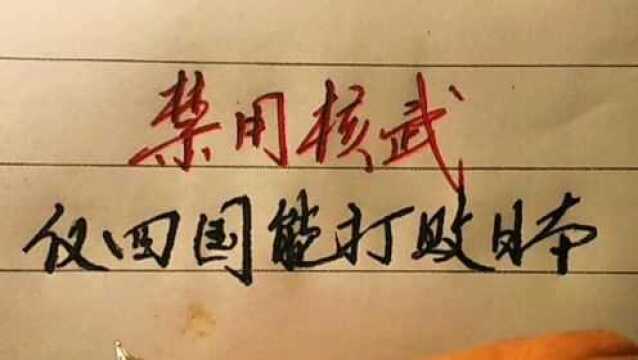 禁用核武
仅四国能打败日本